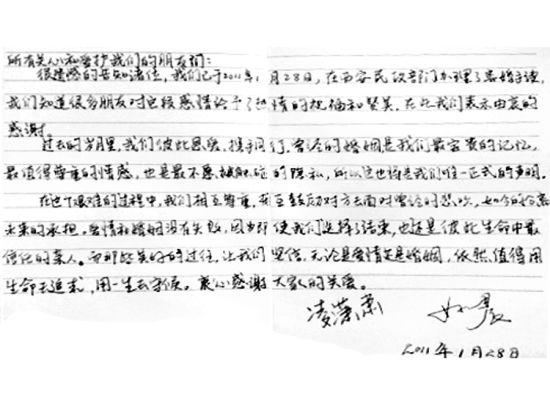 所有关心和爱护我们的朋友们:
很遗憾的告知诸位,我们已于2011年1月28日,在西安民政部门办理了离婚手续,
我们知道很多朋友对这段感情给予了热情的祝福和赞美,在此我们表示由衷的
感谢。
过去的岁月里,我们彼此恩爱,携手同行,曾经的婚姻是我们最宝贵的记忆,
最值得尊重的情感,也是最不愿被触碰的隐私,所以这也将是我们唯一正式的声明。
在这个艰难的过程中,我们相互尊重,
未来的承担。爱情和婚姻没有失败,因为即使我们选择了结束,也还是彼此生命中最
信任的亲人。而那些美好的过往,让我们坚信,无论是爱情还是婚姻,依然值得用
生命去追求,用一生去守候。衷心感谢大家的关爱。
凌潇肃 姚晨
2011年1月28日